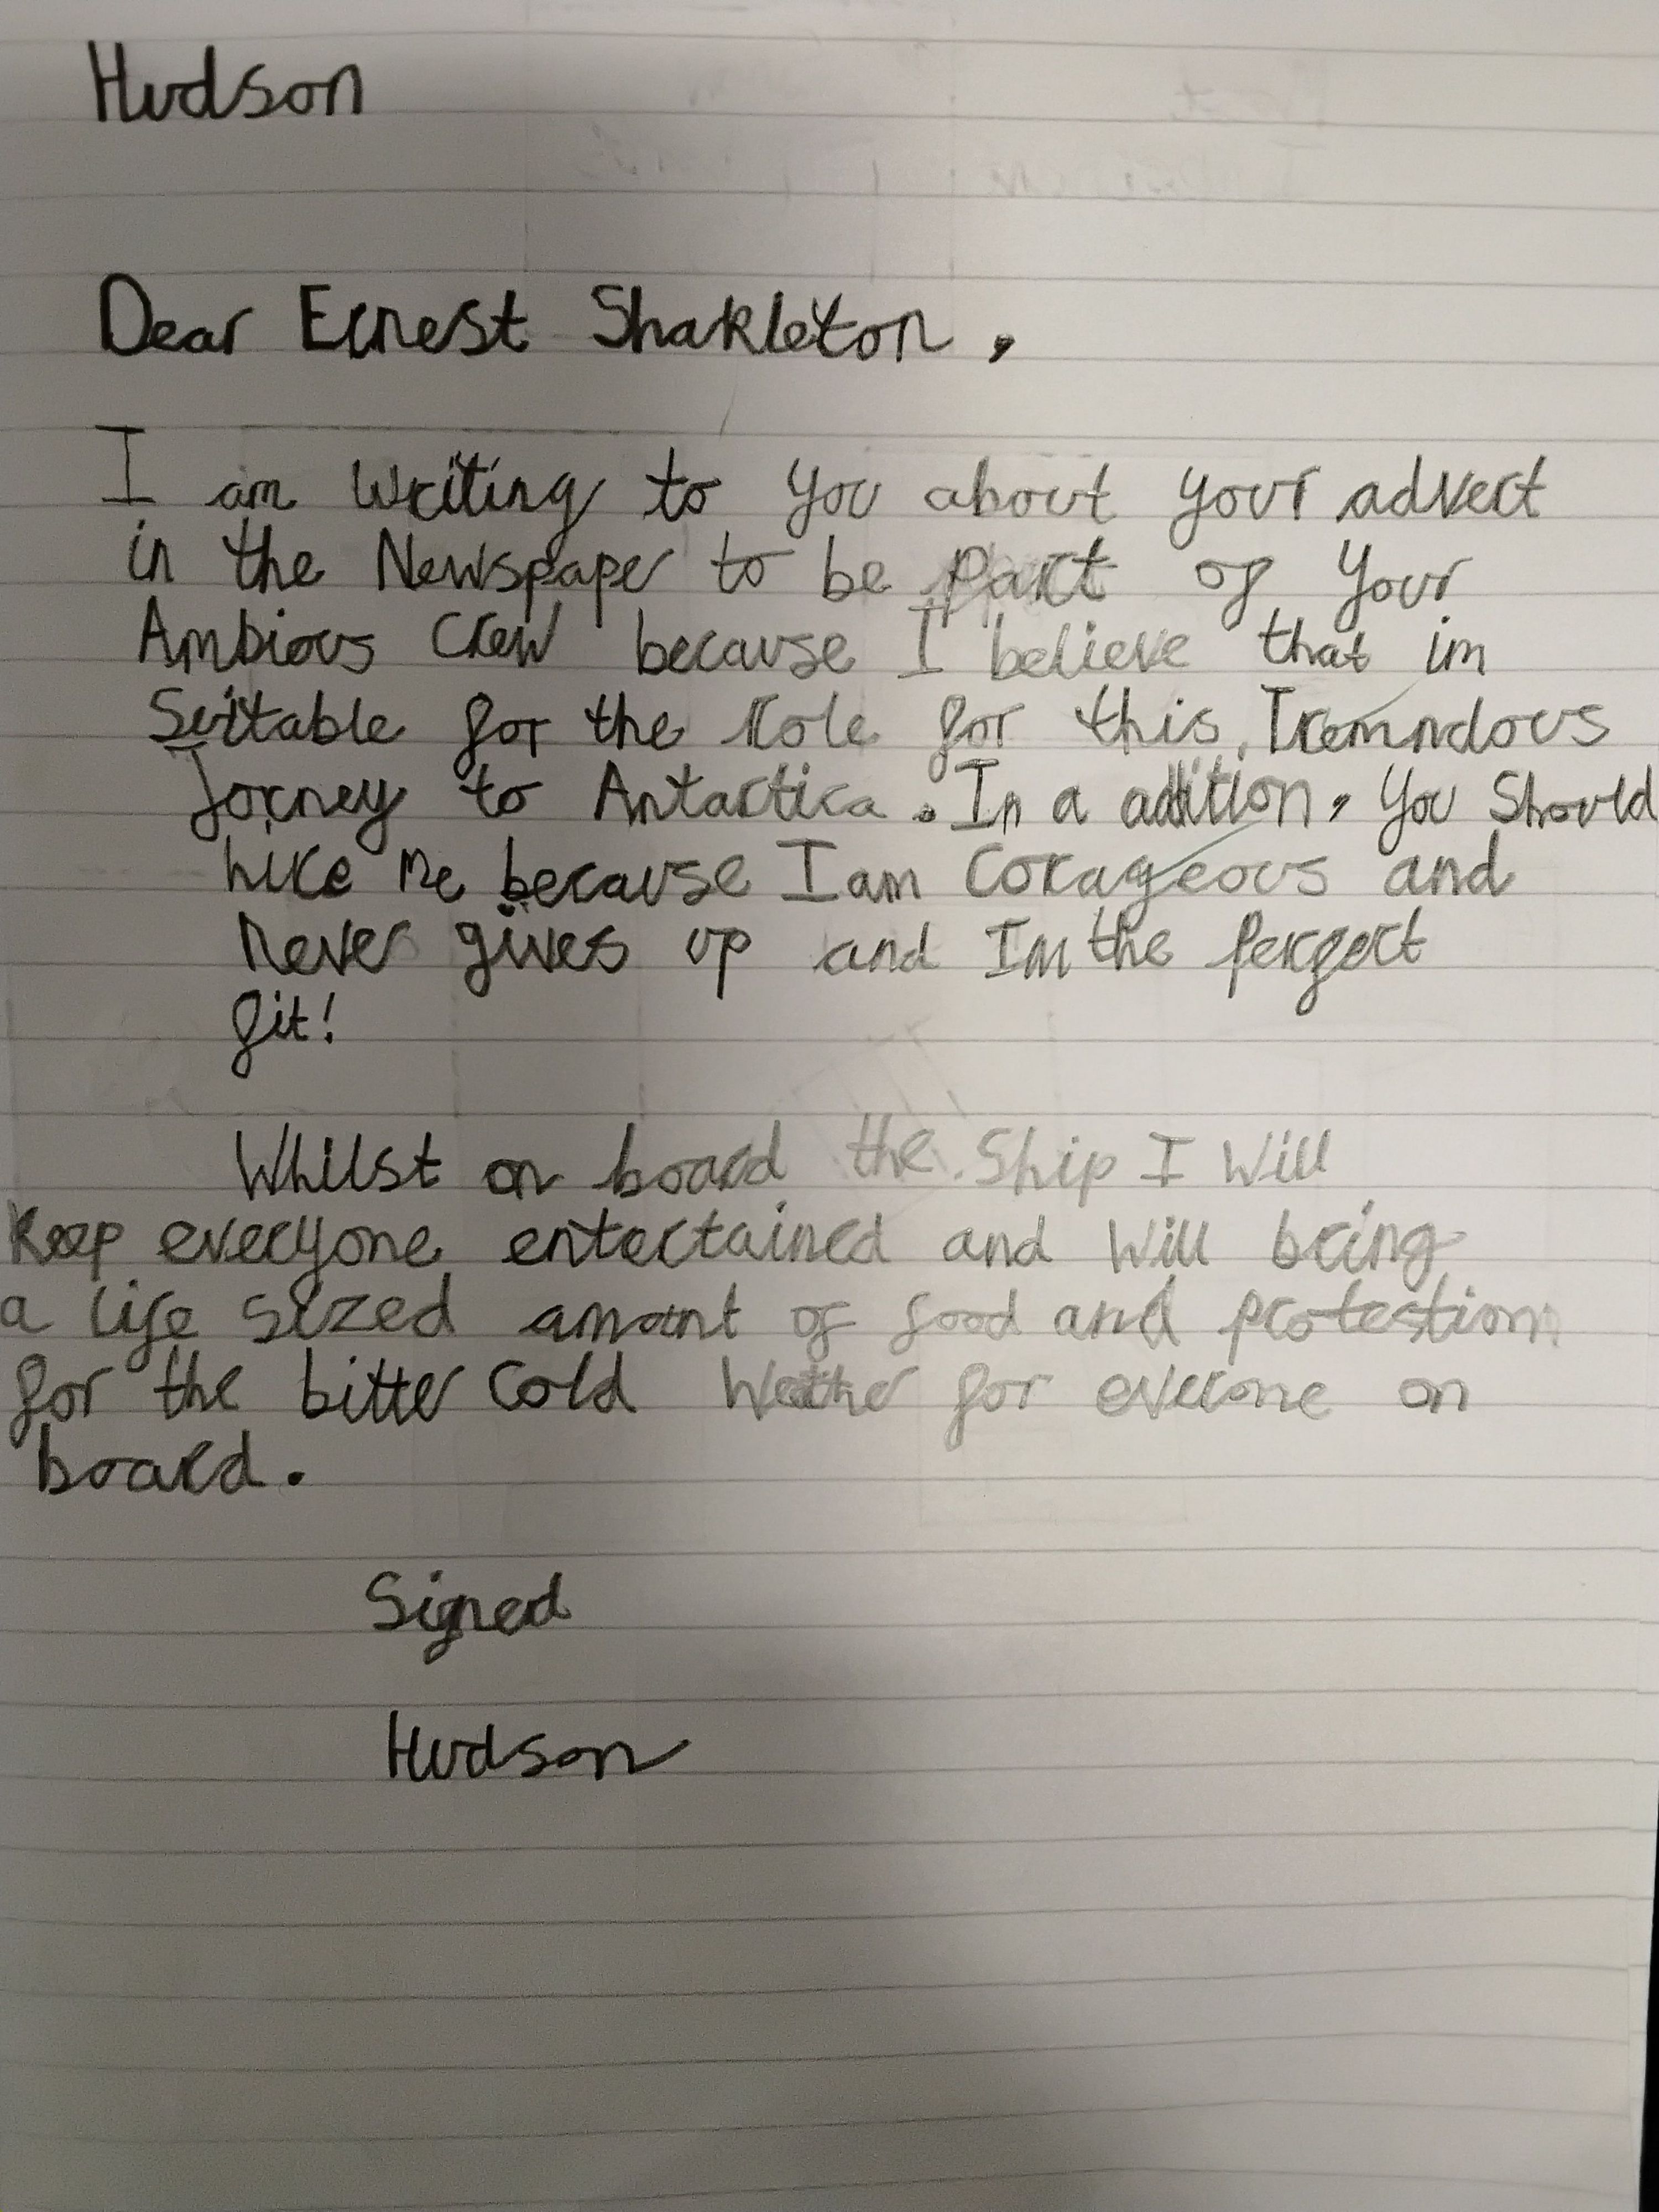 Hudson
Dear Ernest Shakleton,
I am writing to you about your advert
in the Newspaper to be part of your
Ambious Crew because I believe that im
Suitable for the Role for this Tremndous
Jorney to Antartica. In a addition, you Should
hire me because I am Corageous and
never gives up and Im the perfect
fit!
Whilst on board the Ship I Will
Keep everyone entertained and Will bring
a life sized amount of food and protestion
for the bitter Cold Weather for everone on
board.
Signed
Hudson